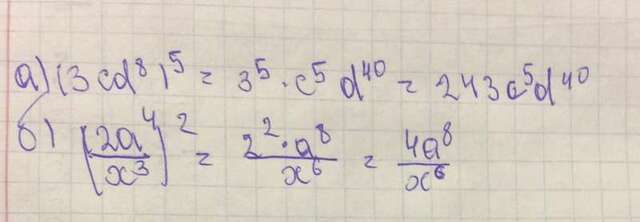 а) (3cd⁸)⁵ = 3⁵ · c⁵ d⁴⁰ = 243c⁵d⁴⁰
б) (2a⁴/x³)² = 2²·a⁸/x⁶ = 4a⁸/x⁶